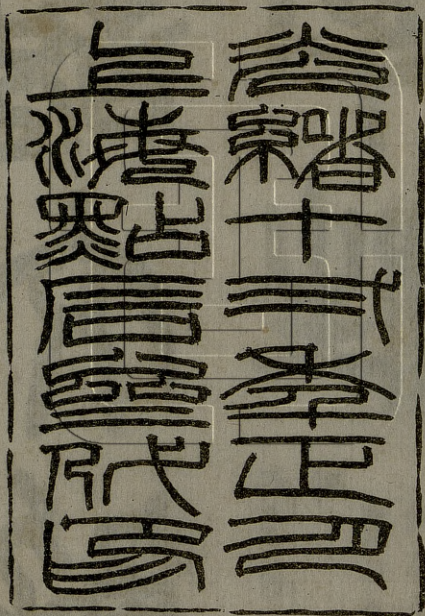 光緒十弍年正月
上海點石齋代印